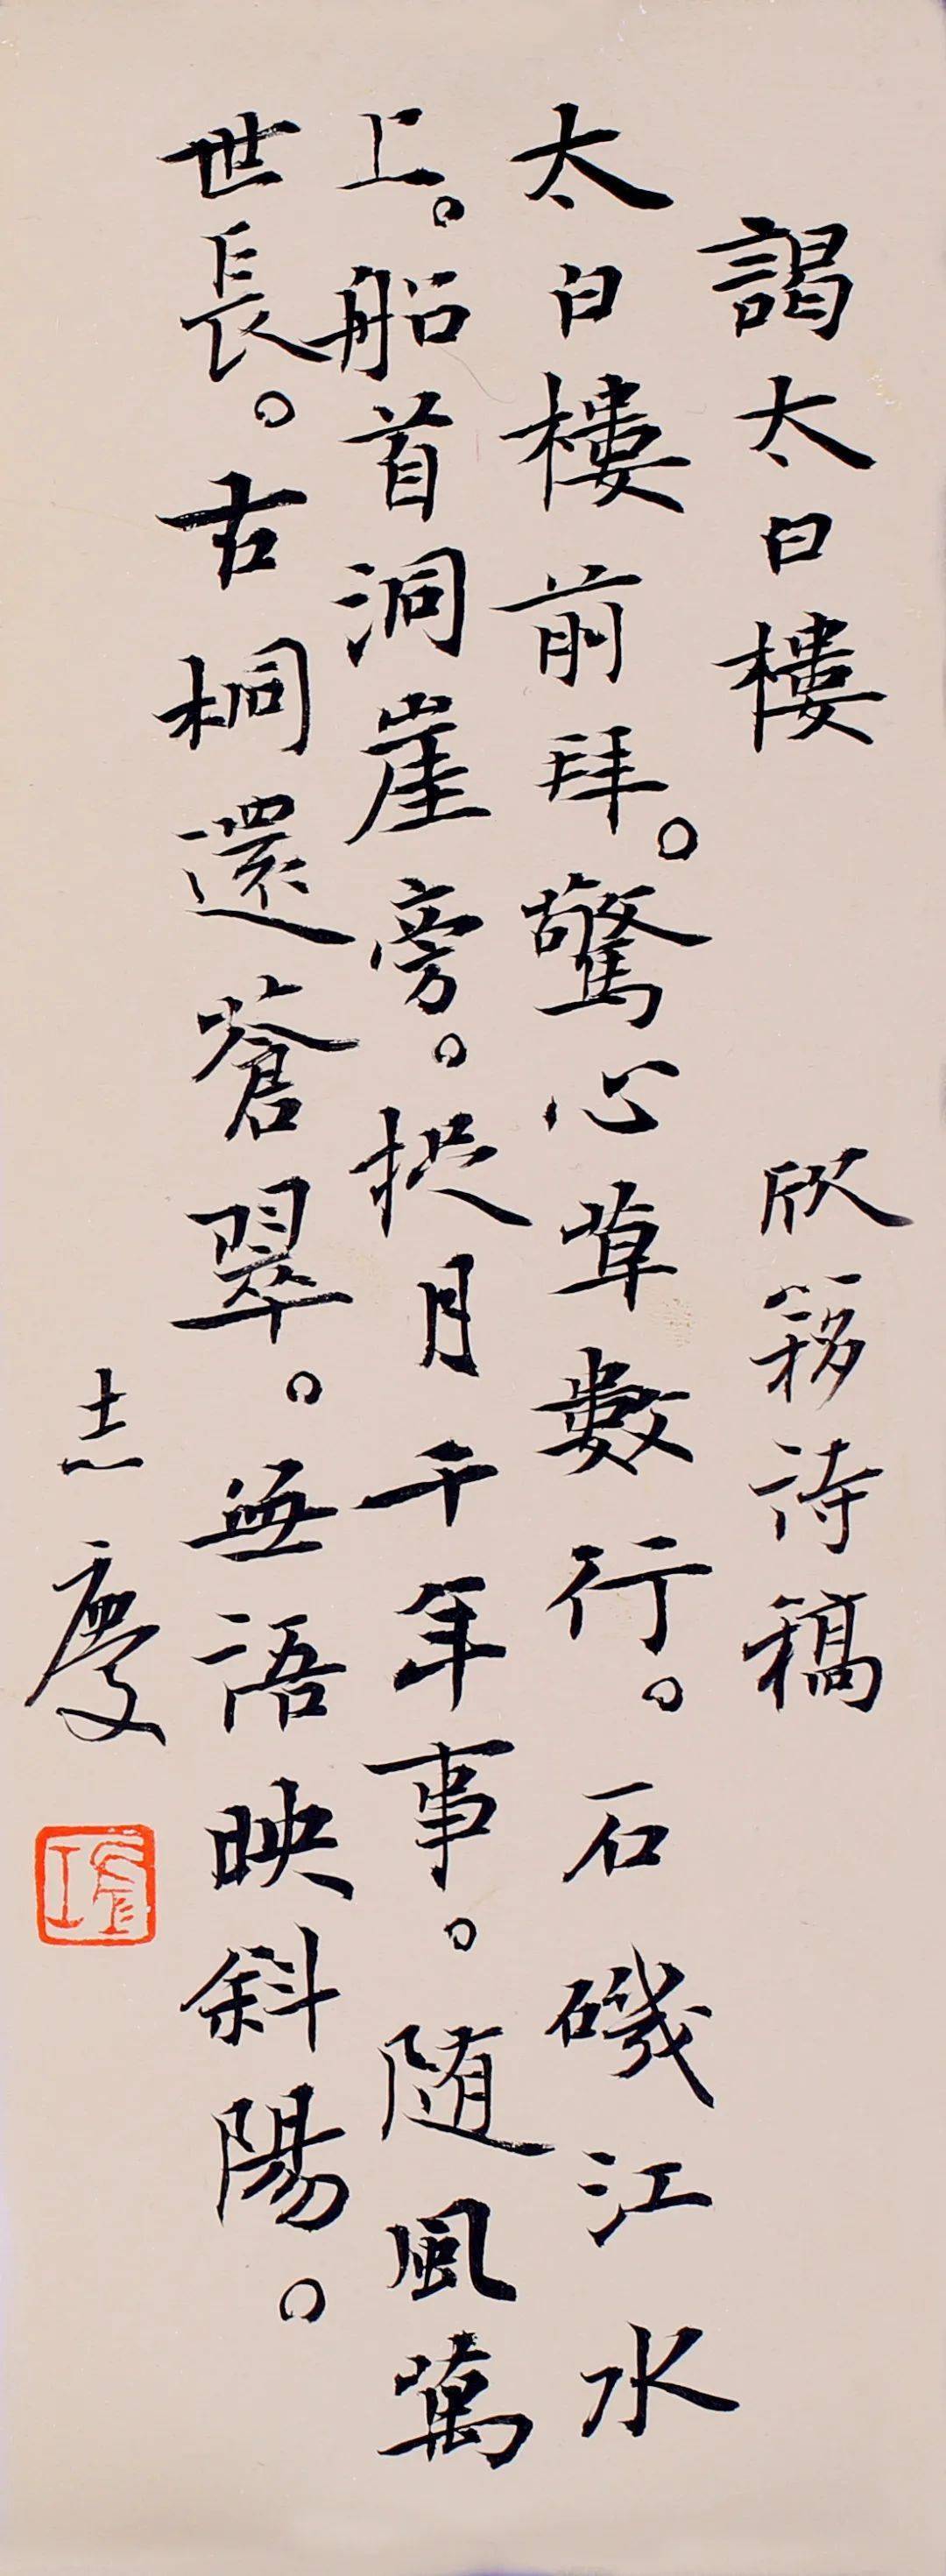 謁太白樓 欣簃詩稿
太白樓前拜。驚心草數行。石磯江水
上。船首洞崖旁。捉月千年事。随風萬
世長。古桐還蒼翠。無語映斜陽。
志慶